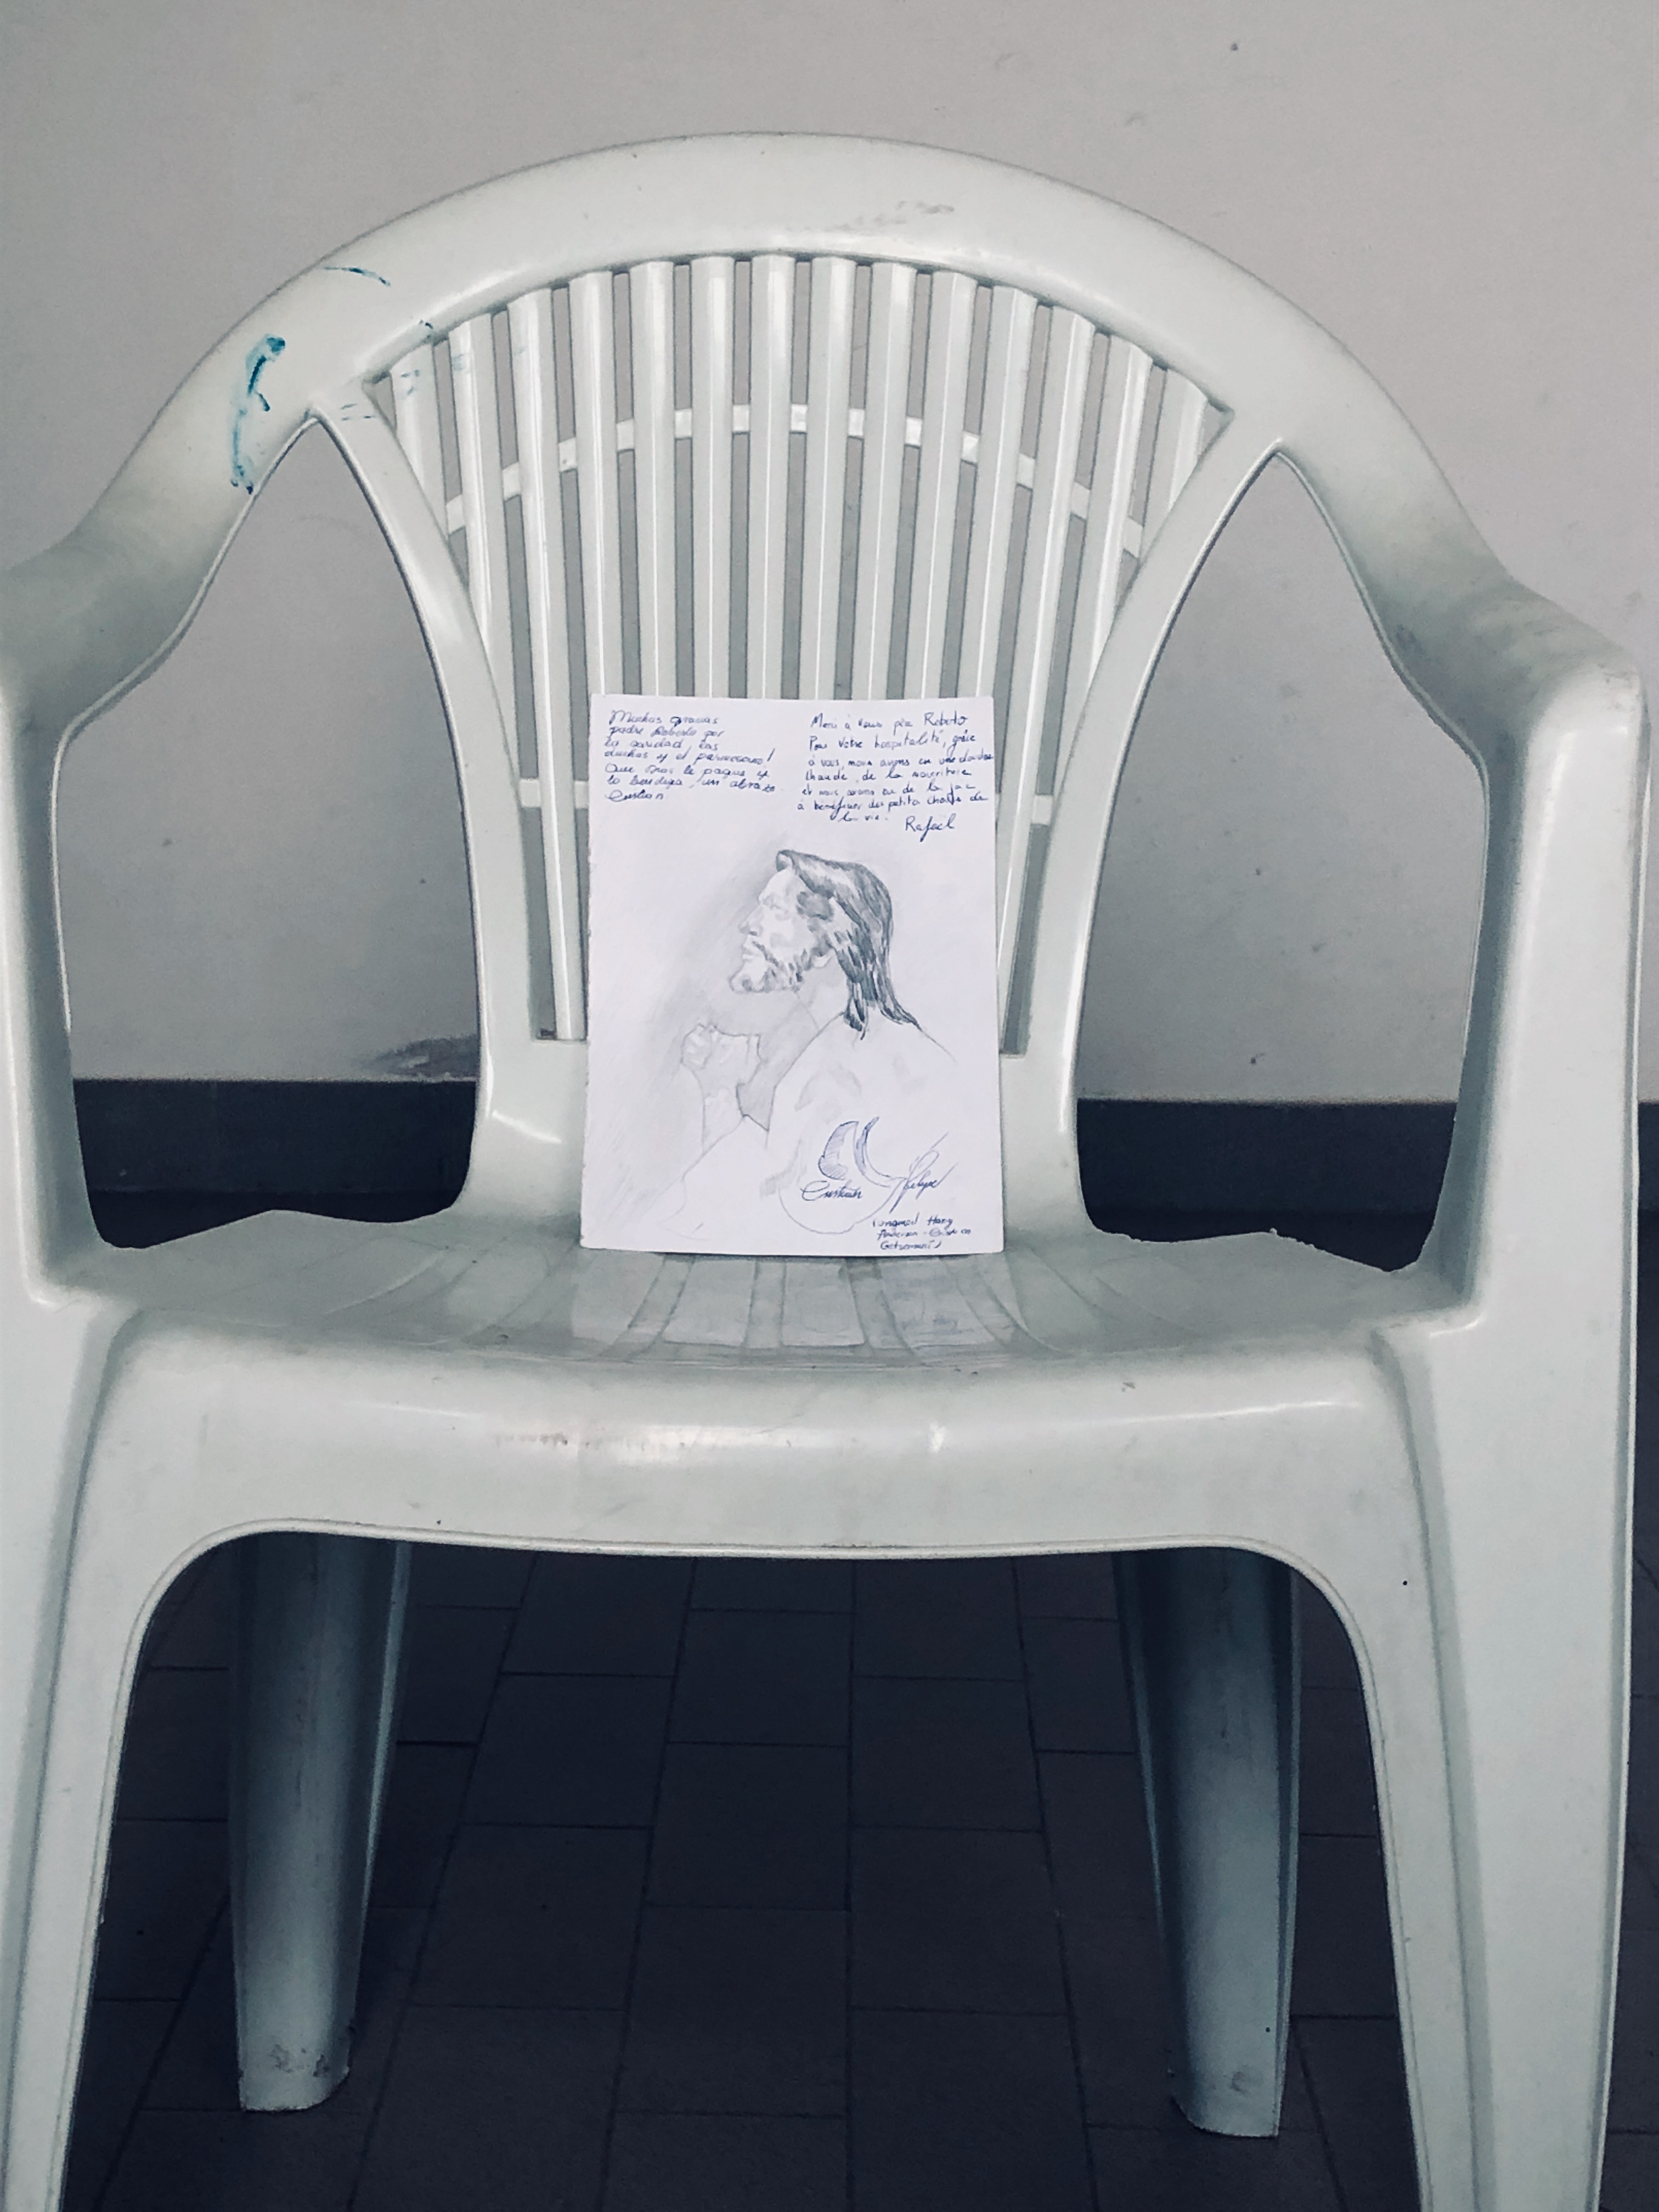 Muchas gracias
padre Roberto por
la caridad, las
duchas y el
Que Dios le pague y
lo bendiga, un abrazo
Cristian
Merci à vous père Roberto
Pour votre hospitalité, grâce
à vous, nous avons eu une douche
chaude, de la nourriture
et nous avons eu de la joie
à bénéficier des petites choses de
la vie. Rafael
Cristian Felipe
Hany
Getsemaní